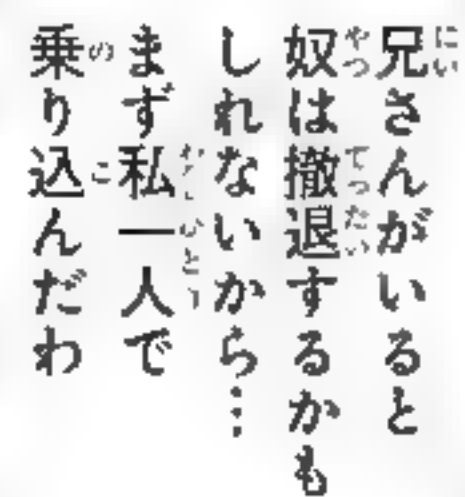 兄さんがいると
奴は撤退するかも
しれないから…
まず私一人で
乗り込んだわ